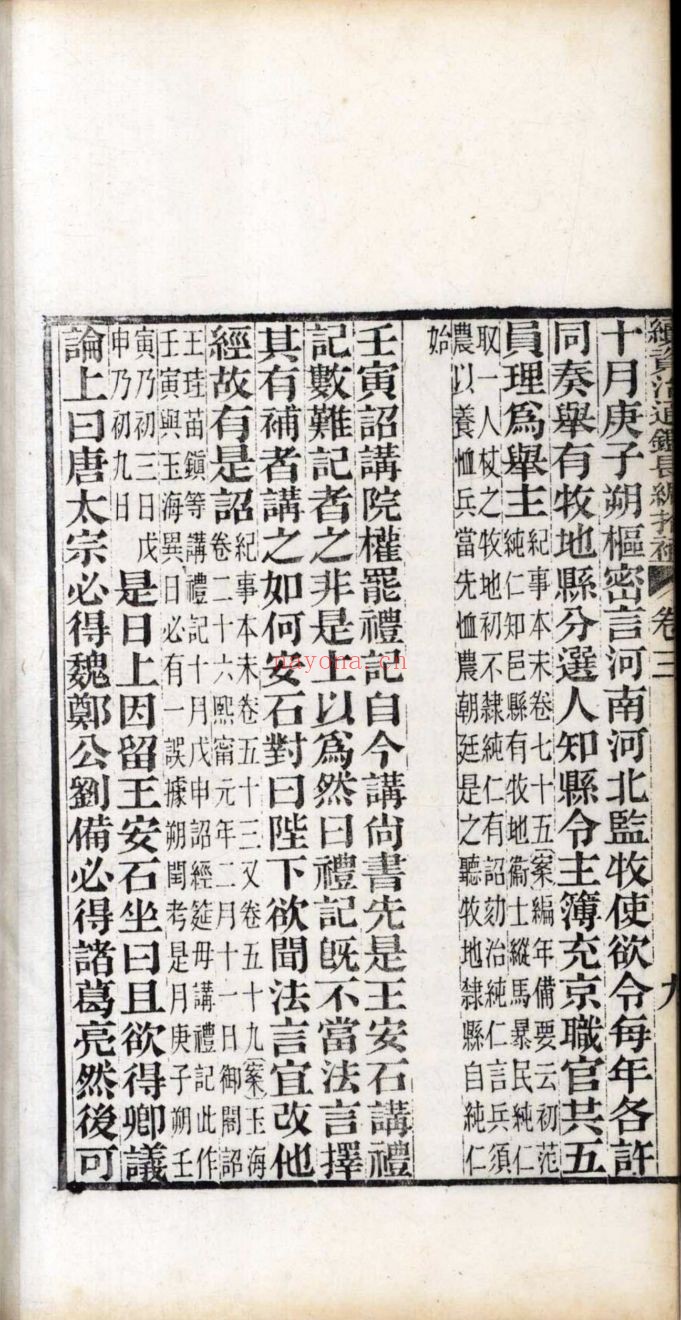 續資治通鑑長編拾補 卷三 九
十月庚子朔樞密言河南河北監牧使欲令每年各許
同奏舉有牧地縣分選人知縣令主簿充京職官共五
員理爲舉主
紀事本末卷七十五案編年備要云初范
純仁知邑縣有牧地衞士縱馬暴民純仁
取一人杖之牧地初不隸純仁有詔劾治純仁言兵須
農以養恤兵當先恤農朝廷是之聽牧地隸縣自純仁
始
壬寅詔講院權罷禮記自今講尙書先是王安石講禮
記數難記者之非是上以爲然曰禮記旣不當法言擇
其有補者講之如何安石對曰陛下欲聞法言宜改他
經故有是詔
紀事本末卷五十三又卷五十九案玉海
卷二十六熙甯元年二月十一日御閣詔
王珪苗鎮等講禮記十月戊申詔經筵毋講禮記此作
壬寅與玉海異日必有一誤據朔閏考是月庚子朔壬
寅乃初三日戊
申乃初九日
是日上因留王安石坐曰且欲得卿議
論上曰唐太宗必得魏鄭公劉備必得諸葛亮然後可
nayona.cn